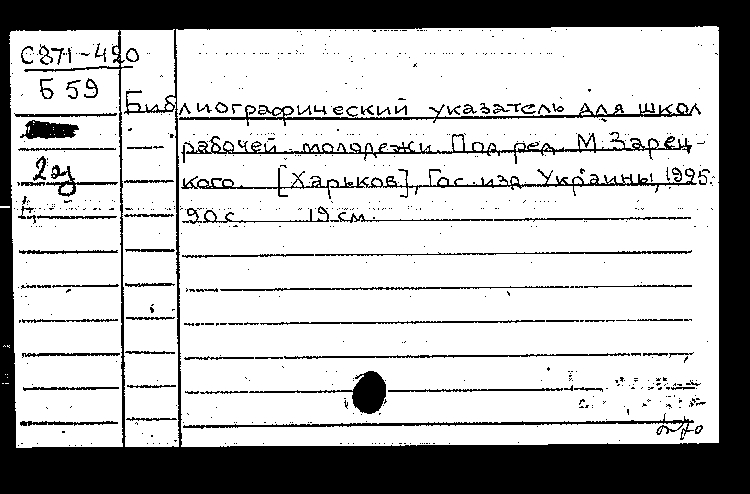 С871-420
Б 59
Библиографический указатель для школ
рабочей молодежи. Под ред. М. Зарец-
кого. [Харьков], Гос. изд. Украины, 1925.
90 с. 19 см.